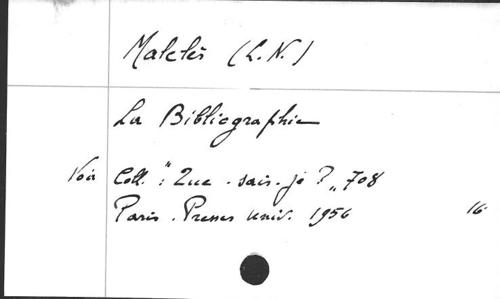 Malclès (L.N.)
La Bibliographie
Voir Coll. : "Que - sais-je ? „ 708
Paris . Presses Univ. 1956 16